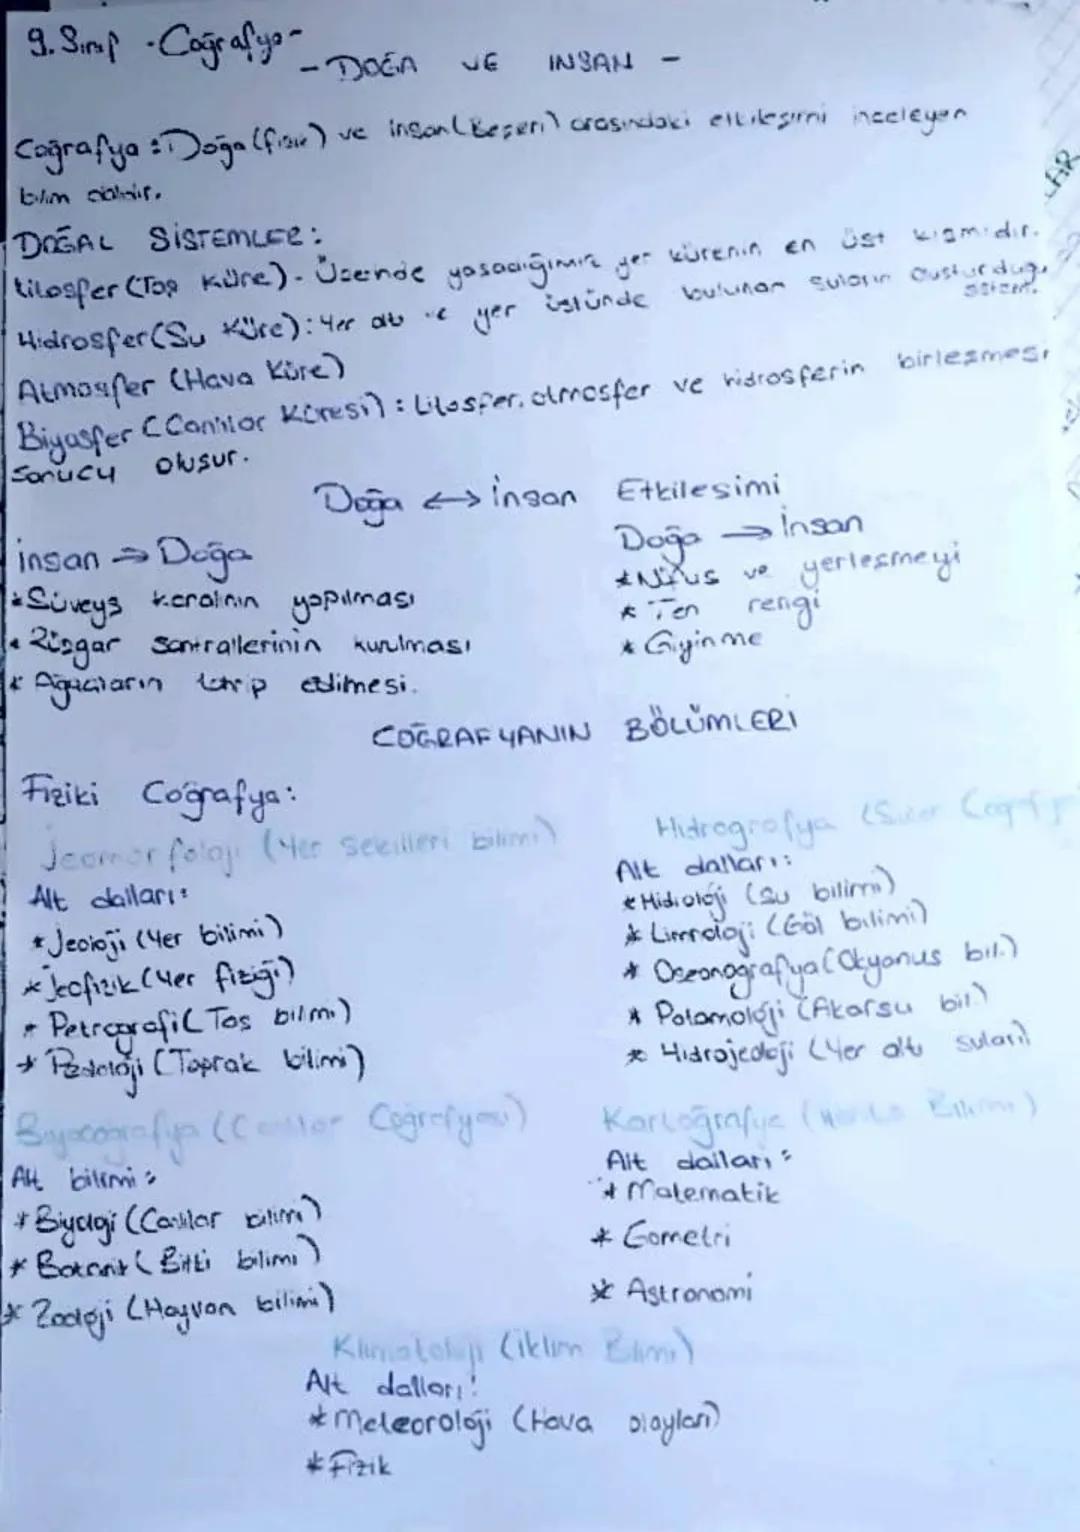 9. Sınıf - Coğrafya -
- DOĞA VE INSAN -
Coğrafya : Doğa (fiziki) ve insan (Beşeri) arasındaki etkileşimi inceleyen
bilim dalıdır.
DOĞAL SİSTEMLER:
Litosfer (Taş Küre) - Üzerinde yaşadığımız yer kürenin en üst kısmıdır.
Hidrosfer (Su Küre): Yer altı ve yer üstünde bulunan suların oluşturduğu
sistem.
Atmosfer (Hava Küre)
Biyosfer (Canlılar Küresi) : Litosfer, atmosfer ve hidrosferin birleşmesi
sonucu oluşur.
Doğa ↔ İnsan Etkileşimi
insan → Doğa
* Süveyş kanalının yapılması
* Rüzgar santrallerinin kurulması
* Ağaçların tahrip edilmesi.
Doğa → İnsan
* Nüfus ve yerleşmeyi
* Ten rengi
* Giyinme
COĞRAFYANIN BÖLÜMLERİ
Fiziki Coğrafya:
Jeomorfoloji (Yer şekilleri bilimi)
Alt dalları:
* Jeoloji (Yer bilimi)
* Jeofizik (Yer fiziği)
* Petrografi (Taş bilmi)
* Pedoloji (Toprak bilimi)
Hidrografya (Sular
Alt dalları:
* Hidroloji (Su bilimi)
* Limnoloji (Göl bilimi)
* Oseonografya (Okyonus bil.)
* Potamoloji (Akarsu bil.)
* Hidrojeoloji (Yer altı suları)
Biyocoğrafya (Canlılar Coğrafyası)
Alt bilimi:
* Biyoloji (Canlılar bilimi)
* Botanik (Bitki bilimi)
* Zooloji (Hayvan bilimi)
Kartoğrafya (Harita Bilimi)
Alt dalları:
* Matematik
* Gometri
* Astronomi
Klimatoloji (iklim Bilimi)
Alt dalları:
* Meteoroloji (Hava olayları)
* Fizik